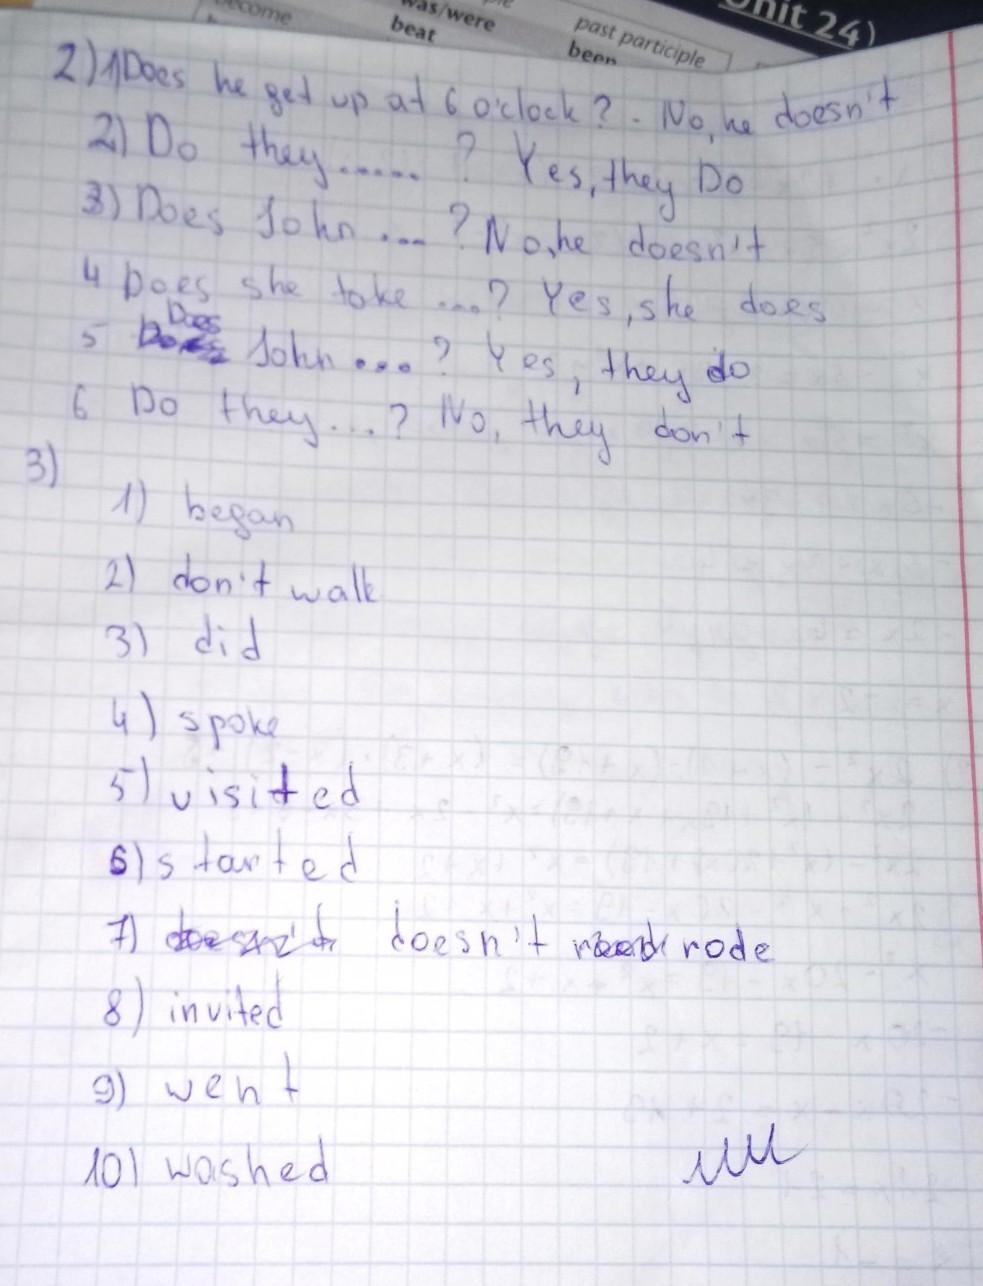 ecome was/were past participle Unit 24)
beat been
2) 1) Does he get up at 6 o'clock? - No, he doesn't
2) Do they...... ? Yes, they Do
3) Does John .... ? No, he doesn't
4 Does she take ....? Yes, she does
Does
5 John ....? Yes, they do
6 Do they....? No, they don't
3)
1) began
2) don't walk
3) did
4) spoke
5) visited
6) started
7) doesn't doesn't rode
8) invited
9) went
10) washed